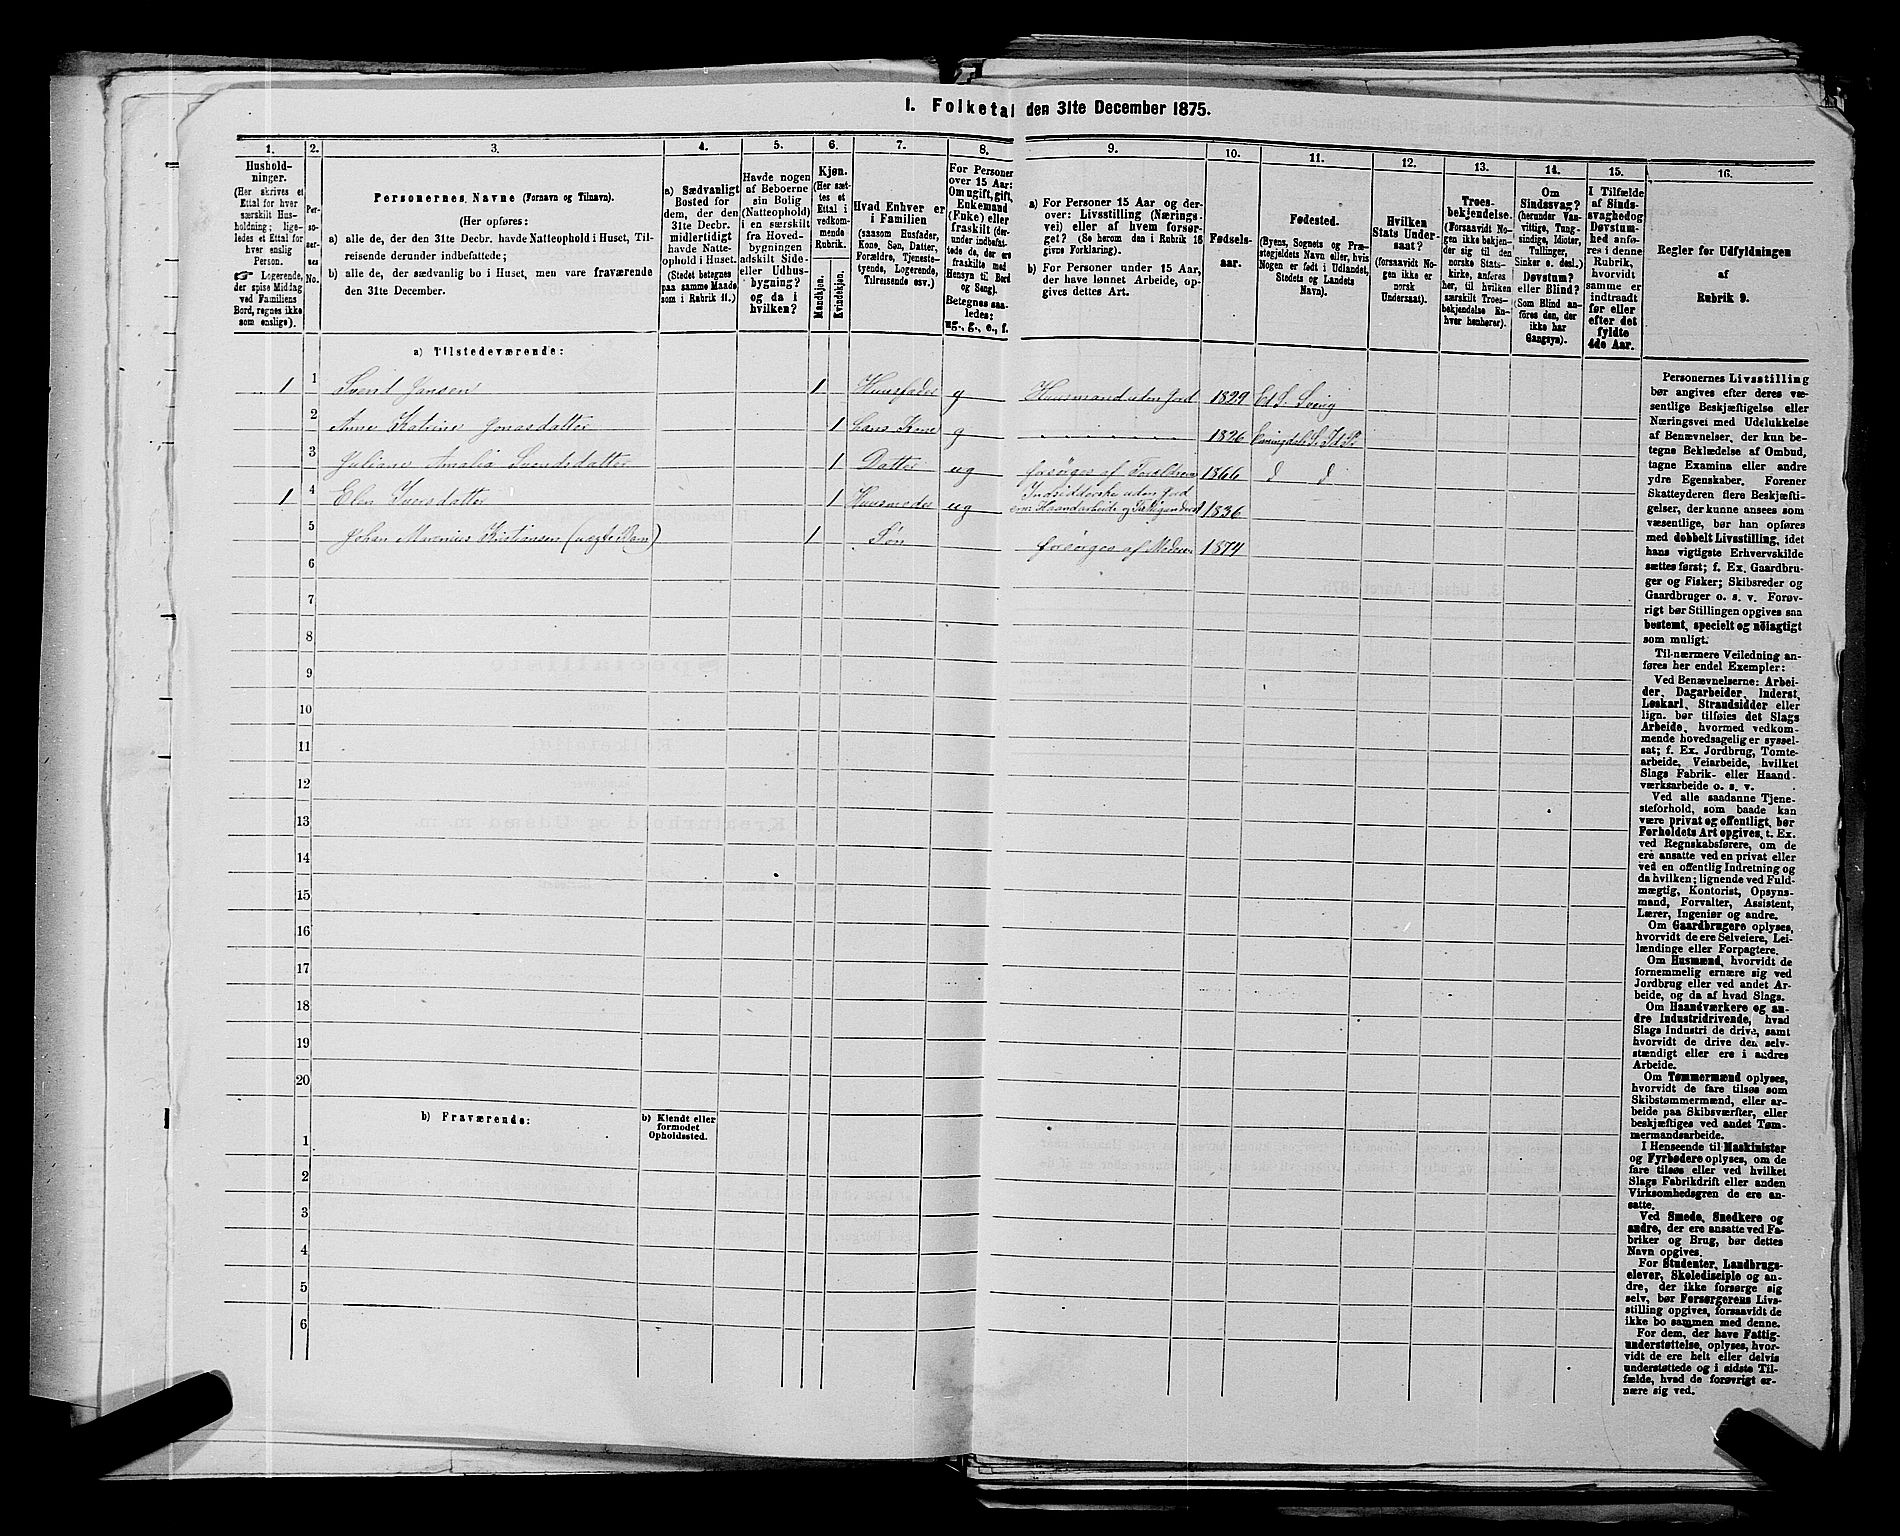 I. Folketal den 31te December 1875.
1.
Hushold-
ninger.
(Her skrives et
Ettal for hver
særskilt Hus-
holdning; lige-
ledes et Ettal for
hver enslig
Person.
☞ Logerende,
der spise Middag
ved Familiens
Bord, regnes ikke
som enslige).
2.
Per-
so-
ner-
nes
No.
3.
Personernes Navne (Fornavn og Tilnavn).
(Her opføres:
a) alle de, der den 31te Decbr. havde Natteophold i Huset, Til-
reisende derunder indbefattede;
b) alle de, der sædvanlig bo i Huset, men vare fraværende
den 31te December.
4.
a) Sædvanligt
Bosted for
dem, der den
31te Decbr.
midlertidigt
havde Natte-
ophold i Huset.
(Stedet betegnes
paa samme Maade
som i Rubrik 11.)
5.
Havde nogen
af Beboerne
sin Bolig
(Natteophold)
i en særskilt
fra Hoved-
bygningen
adskilt Side-
eller Udhus-
bygning?
og da i
hvilken?
6.
Kjøn.
(Her sæt-
tes et
Ettal i
vedkom-
mende
Rubrik.
Mandkjøn.
Kvindekjøn.
7.
Hvad Enhver er
i Familien
(saasom Husfader,
Kone, Søn, Datter,
Forældre, Tjeneste-
tyende, Logerende,
Tilreisende osv.)
8.
For Personer
over 15 Aar:
Om ugift, gift,
Enkemand
(Enke) eller
fraskilt (der-
under indbefat-
tede de, der ere
fraskilte med
Hensyn til Bord
og Seng).
Betegnes saa-
ledes:
ug., g., e., f.
9.
a) For Personer 15 Aar og der-
over: Livsstilling (Nærings-
vei) eller af hvem forsør-
get? (Se herom den i Rubrik 16
givne Forklaring).
b) For Personer under 15 Aar,
der have lønnet Arbeide, op-
gives dettes Art.
10.
Fødsels-
aar.
11.
Fødested.
(Byens, Sognets og Præ-
stegjeldets Navn eller, hvis
Nogen er født i Udlandet,
Stedets og Landets
Navn).
12.
Hvilken
Stats Under-
saat?
(forsaavidt No-
gen ikke er
norsk
Undersaat).
13.
Troes-
bekjendelse.
(Forsaavidt No-
gen ikke bekjen-
der sig til den
norske Stats-
kirke, anføres
her, til hvilken
særskilt Troes-
bekjendelse En-
hver henhører).
14.
Om
Sindssvag?
(herunder Van-
vittige, Tung-
sindige, Idioter,
Tullinger,
Sinker o. desl.)
Døvstum?
eller Blind?
(Som Blind an-
føres den, der
ikke har
Gangsyn).
15.
I Tilfælde
af Sinds-
svaghed og
Døvstum-
hed anfø-
res i denne
Rubrik,
hvorvidt
samme er
indtraadt
før eller
efter det
fyldte
4de Aar.
16.
Regler for Udfyldningen
af
Rubrik 9.
a) Tilstedeværende:
1 1 Svend Jansen 1 Huusfader g Huusmand uden Jord 1829 Ed S. Sverig
2 Anne Katrine Jonasdatter 1 hans Kone g 1826
3 Juliane Amalia Svendsdatter 1 Datter ug forsørges af Forældrene 1866 d d
1 4 Elen Iversdatter 1 Huusmoder ug Indsidderske uden Jord
Haandarbeide og Fattigunderst 1836
5 Johan Marenius Kristiansen (uægte Barn) 1 Søn forsørges af Moderen 1874
6
7
8
9
10
11
12
13
14
15
16
17
18
19
20
b) Fraværende:
b) Kjendt eller
formodet
Opholdssted.
1
2
3
4
5
6
Personernes Livsstilling
bør angives efter deres væ-
sentlige Beskjæftigelse eller
Næringsvei med Udelukkelse
af Benævnelser, der kun be-
tegne Beklædelse af Ombud,
tagne Examina eller andre
ydre Egenskaber. Forener
Skatteyderen flere Beskjæfti-
gelser, der kunne ansees som
væsentlige, bør han opføres
med dobbelt Livsstilling, idet
hans vigtigste Erhvervskilde
sættes først; f. Ex. Gaardbru-
ger og Fisker; Skibsreder og
Gaardbruger o. s. v. Forøv-
rigt bør Stillingen opgives saa
bestemt, specielt og nøiagtigt
som muligt.
Til nærmere Veiledning an-
føres her endel Exempler:
Ved Benævnelserne: Arbei-
der, Dagarbeider, Inderst,
Løskarl, Strandsidder eller
lign. bør tilføies det Slags
Arbeide, hvormed vedkom-
mende hovedsagelig er syssel-
sat; f. Ex. Jordbrug, Tomte-
arbeide, Veiarbeide, hvilket
Slags Fabrik- eller Haand-
værksarbeide o. s. v.
Ved alle saadanne Tjene-
steforhold, som baade kan
være privat og offentligt, bør
Forholdets Art opgives, t. Ex.
ved Regnskabsførere, om de
ere ansatte ved en privat eller
ved en offentlig Indretning og
da hvilken; lignende ved Fuld-
mægtig, Kontorist, Opsyns-
mand, Forvalter, Assistent,
Lærer, Ingeniør og andre.
Om Gaardbrugere oplyses,
hvorvidt de ere Selveiere, Lei-
lændinge eller Forpagtere.
Om Husmænd, hvorvidt de
fornemmelig ernære sig ved
Jordbrug eller ved andet Ar-
beide, og da af hvad Slags.
Om Haandværkere og an-
dre Industridrivende, hvad
Slags Industri de drive, samt
hvorvidt de drive den selv-
stændigt eller ere i andres
Arbeide.
Om Tømmermænd oplyses,
hvorvidt de fare tilsøs som
Skibstømmermænd, eller ar-
beide paa Skibsværfter, eller
beskjæftiges ved andet Tøm-
mermandsarbeide.
I Henseende til Maskinister
og Fyrbødere oplyses, om de
fare tilsøs eller ved hvilket
Slags Fabrikdrift eller anden
Virksomhedsgren de ere an-
satte.
Ved Smede, Snedkere og
andre, der ere ansatte ved Fa-
briker og Brug, bør dettes
Navn opgives.
For Studenter, Landbrugs-
elever, Skoledisciple og an-
dre, der ikke forsørge sig
selv, bør Forsørgerens Livs-
stilling opgives, forsaavidt de
ikke bo sammen med denne.
For dem, der have Fattig-
understøttelse, oplyses, hvor-
vidt de ere helt eller delvis
understøttede og i sidste Til-
fælde, hvad de forøvrigt er-
nære sig ved.